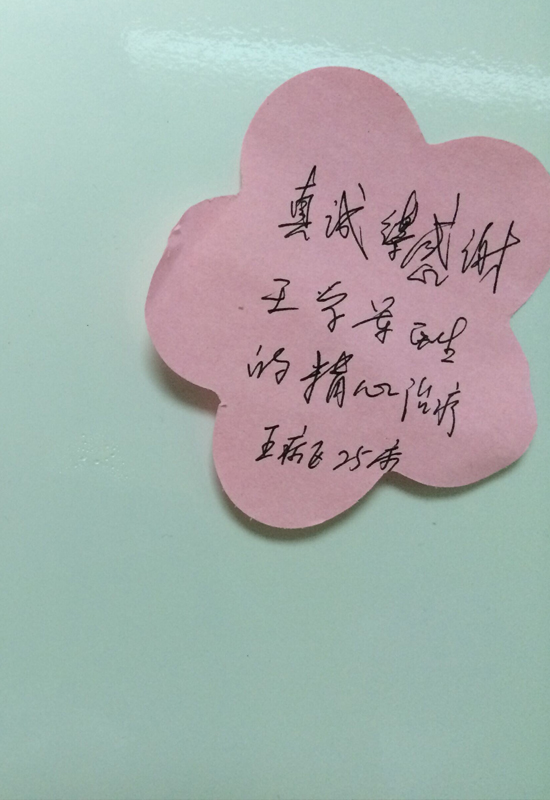 真诚感谢
王学军医生
的精心治疗
五病区25床